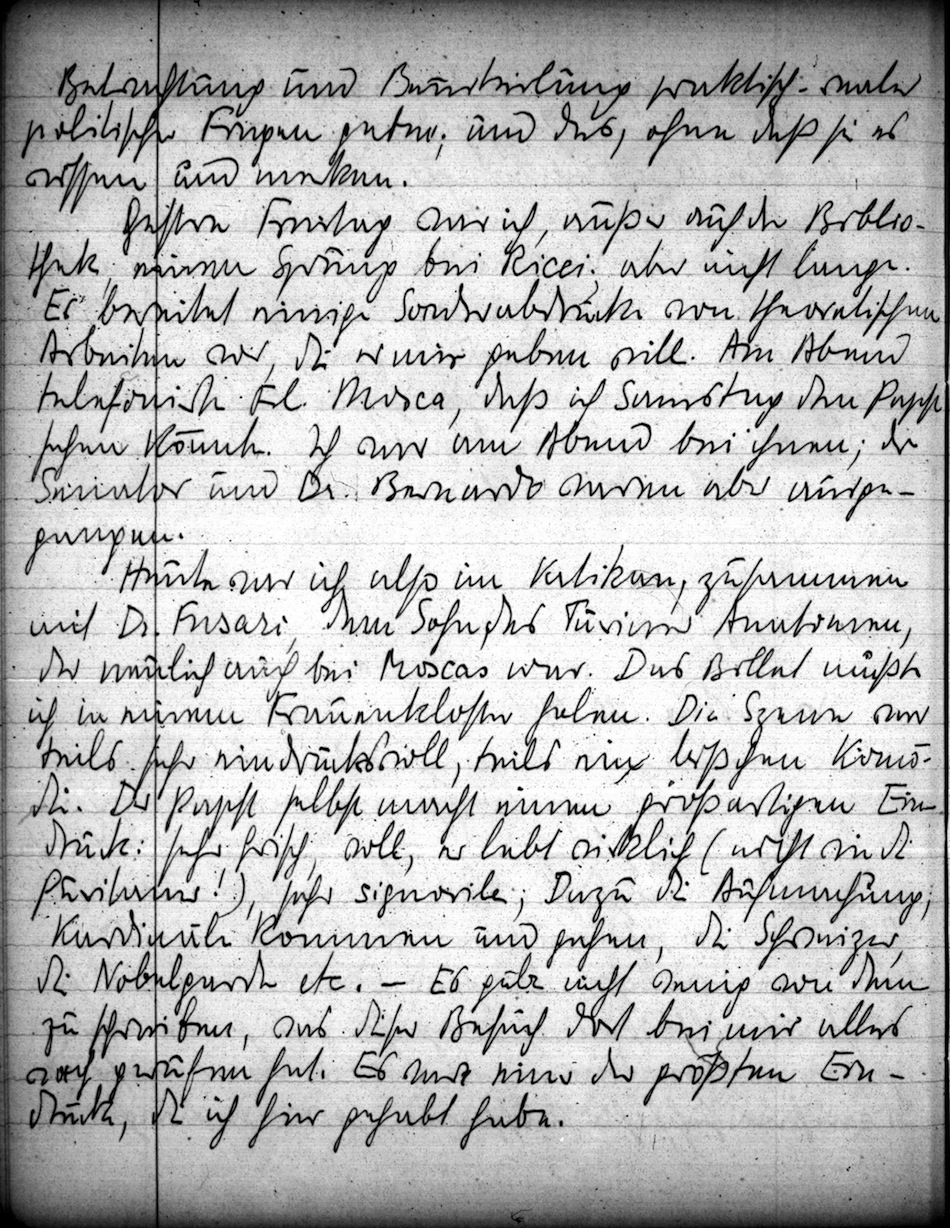 Betrachtung und Beurteilung praktisch-realer
politischer Fragen guten; und das, ohne daß sie es
wissen und merken.
Gestern Freitag war ich, außer auf der Biblio-
thek, einen Sprung bei Ricci; aber nicht lange.
Er bereitet einige Sonderabdrucke von theoretischen
Arbeiten vor, die er mir geben will. Am Abend
telefonierte Frl. Mosca, daß ich Samstag den Papst
sehen könnte. Ich war am Abend bei ihnen; der
Senator und Dr. Bernardo waren aber ausge-
gangen.
Heute war ich also im Vatikan, zusammen
mit Dr. Fusari, dem Sohn des Turiner Anatomen,
der neulich auch bei Moscas war. Das Billet mußte
ich in einem Frauenkloster holen. Die Szene war
teils sehr eindrucksvoll, teils ein bißchen Komö-
die. Der Papst selbst macht einen großartigen Ein-
druck: sehr frisch, voll, er lebt wirklich (nicht wie die
Puritaner!), sehr signorile; Dazu die Aufmachung;
Kardinäle kommen und gehen, die Schweizer,
die Nobelgarde etc. – Es gäbe nicht wenig von dem
zu schreiben, was dieser Besuch dort bei mir alles
wach gerufen hat. Es war einer der größten Ein-
drücke, die ich hier gehabt habe.